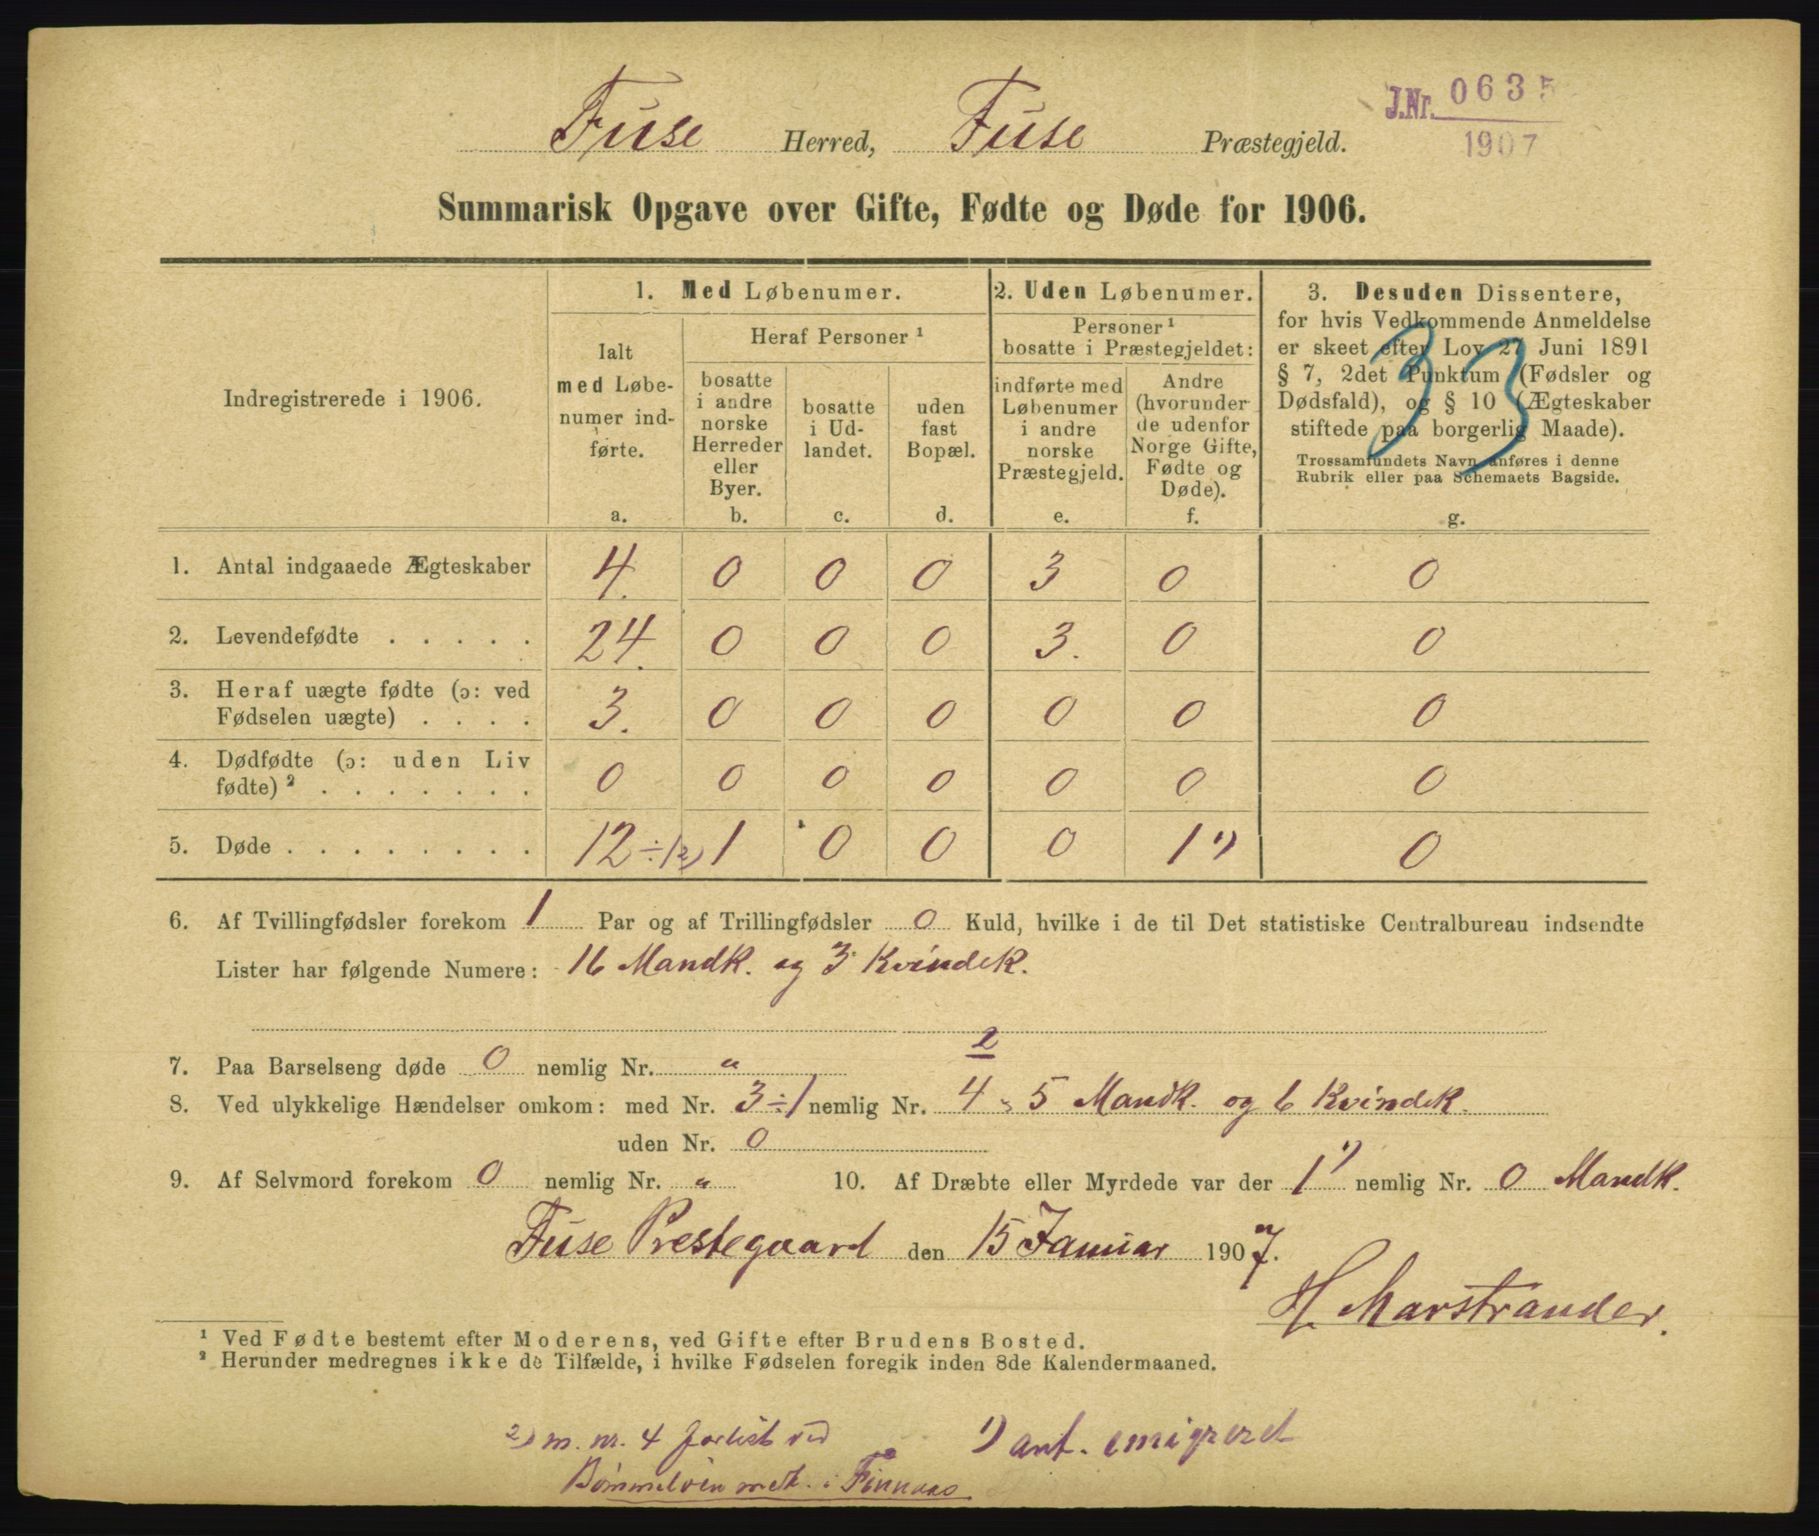 Fuse Herred, Fuse Præstegjeld.
J.Nr. 0635
1907
Summarisk Opgave over Gifte, Fødte og Døde for 1906.
Indregistrerede i 1906.
1. Med Løbenumer.
Ialt
med Løbe-
numer ind-
førte.
a.
Heraf Personer ¹
bosatte
i andre
norske
Herreder
eller
Byer.
b.
bosatte
i Ud-
landet.
c.
uden
fast
Bopæl.
d.
2. Uden Løbenumer.
Personer ¹
bosatte i Præstegjeldet:
indførte med
Løbenumer
i andre
norske
Præstegjeld.
e.
Andre
(hvorunder
de udenfor
Norge Gifte,
Fødte og
Døde).
f.
3. Desuden Dissentere,
for hvis Vedkommende Anmeldelse
er skeet efter Lov 27 Juni 1891
§ 7, 2det Punktum (Fødsler og
Dødsfald), og § 10 (Ægteskaber
stiftede paa borgerlig Maade).
Trossamfundets Navn anføres i denne
Rubrik eller paa Schemaets Bagside.
g.
33
1. Antal indgaaede Ægteskaber 4. 0 0 0 3 0 0
2. Levendefødte . . . . . 24. 0 0 0 3. 0 0
3. Heraf uægte fødte (ɔ: ved
Fødselen uægte) . . . . 3. 0 0 0 0 0 0
4. Dødfødte (ɔ: uden Liv
fødte) ² . . . . . . . 0 0 0 0 0 0 0
5. Døde . . . . . . . . 12 ÷1 2) 1 0 0 0 1 ¹) 0
6. Af Tvillingfødsler forekom 1 Par og af Trillingfødsler 0 Kuld, hvilke i de til Det statistiske Centralbureau indsendte
Lister har følgende Numere: 16 Mandk. og 3 Kvindek.
2
7. Paa Barselseng døde 0 nemlig Nr. "
8. Ved ulykkelige Hændelser omkom: med Nr. 3 ÷1 nemlig Nr. 4, 5 Mandk. og 6 Kvindek.
uden Nr. 0
9. Af Selvmord forekom 0 nemlig Nr. " 10. Af Dræbte eller Myrdede var der 1 ¹) nemlig Nr. 0 Mandk.
Fuse Prestegaard den 15 Januar 1907.
H. Marstrander.
¹ Ved Fødte bestemt efter Moderens, ved Gifte efter Brudens Bosted.
² Herunder medregnes ikke de Tilfælde, i hvilke Fødselen foregik inden 8de Kalendermaaned.
2) m. nr. 4 forlist ved
Bømmeløen medt. i Finnaas
1) ant. emigreret